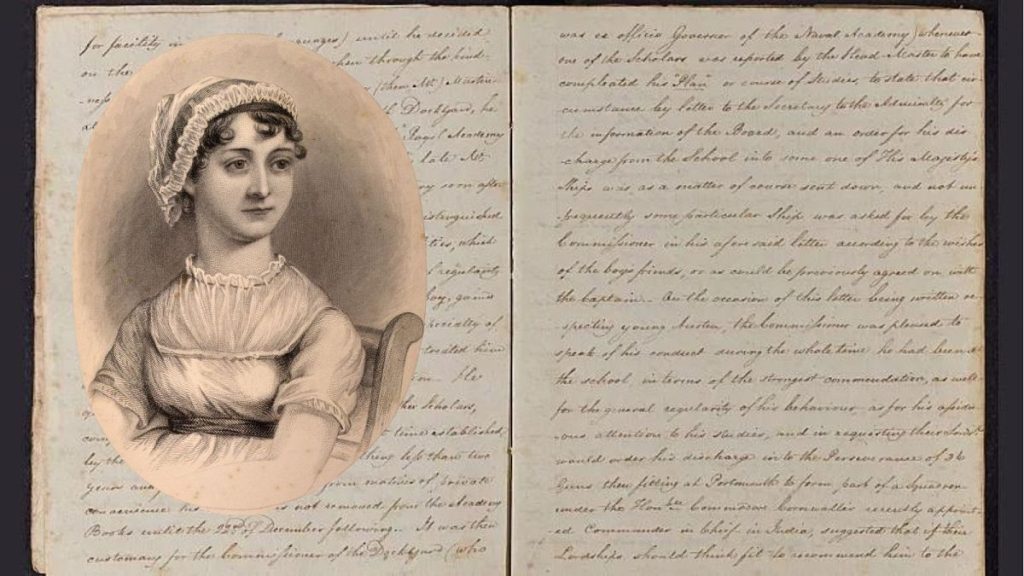 for facility in languages) until he decided
on the then through the kind
ness (then Mr) Martin
Dockyard, he
Royal Academy
late Mr
very soon after
distinguished
ties, which
regularity
boy, gained
specialty of
located him
He
her Scholars,
time established
by the them less than two
years and from motives of private
convenience his not removed from the Academy
Books until the 22nd of December following. It was then
customary for the Commissioner of the Dockyard (who
was ex Officio Governor of the Naval Academy) whenever
one of the Scholars was reported by the Head Master to have
completed his "Plan" or course of Studies, to state that cir-
cumstance by letter to the Secretary to the Admiralty for
the information of the Board, and an order for his dis
-charge from the School into some one of His Majesty's
Ships was as a matter of course sent down, and not un
-frequently some particular Ship was asked for by the
Commissioner in his afore said letter according to the wishes
of the boys friends, or as could be previously agreed on with
the Captain. On the occasion of this letter being written re-
specting young Austen, the Commissioner was pleased to
speak of his conduct during the whole time he had been at
the school, in terms of the strongest commendation, as well
for the general regularity of his behaviour as for his assidu-
ous attention to his studies, and in requesting their Lordps.
would order his discharge in to the Perseverance of 36
Guns then fitting at Portsmouth to form part of a Squadron
under the Honble Commodore Cornwallis recently appoint
-ed Commander in Chief in India, suggested that if their
Lordships should think fit to recommend him to the